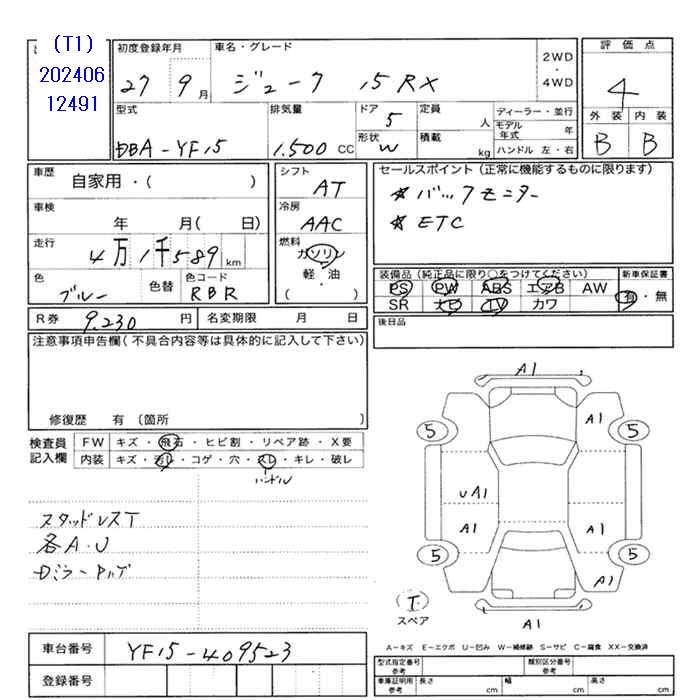 (T1)
202406
12491
初度登録年月
27 9月
車名・グレード
ジューク 15RX
2WD
・
4WD
評価点
4
外装 内装
B B
型式
DBA-YF15
排気量
1.500 CC
ドア
5
形状
W
定員
人
積載
kg
ディーラー・並行
モデル年式 年
ハンドル 左・右
車歴
自家用・( )
車検
年 月( 日)
走行
4万1千589 km
色
ブルー
色替
色コード
RBR
シフト
AT
冷房
AAC
燃料
ガソリン
軽・油
( )
セールスポイント(正常に機能するものに限ります)
☆ バックモニター
☆ ETC
装備品(純正品に限り○をつけてください)
PS PW ABS エアB AW
SR ナビ TV カワ
新車保証書
有・無
後日品
R券 9.230 円 名変期限 月 日
注意事項申告欄(不具合内容等は具体的に記入して下さい)
修復歴 有(箇所
検査員
記入欄
FW キズ・飛石・ヒビ割・リペア跡・X要
内装 キズ・汚レ・コゲ・穴・スレ・キレ・破レ
ハンドル
スタッドレスT
各A・U
Dミラー
A1
A1
5 5
UA1
A1 A1
5 5
A1
A1
T
スペア
A-キズ E-エクボ U-凹み W-補修跡 S-サビ C-腐食 XX-交換済
車台番号 YF15-409523
登録番号
型式指定番号 参考
類別区分番号 参考
車庫証明用 参考 長さ cm 幅 cm 高さ cm